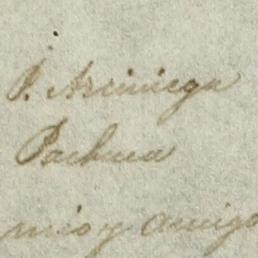 P. Arciniega
Pachuca
mio y amigo